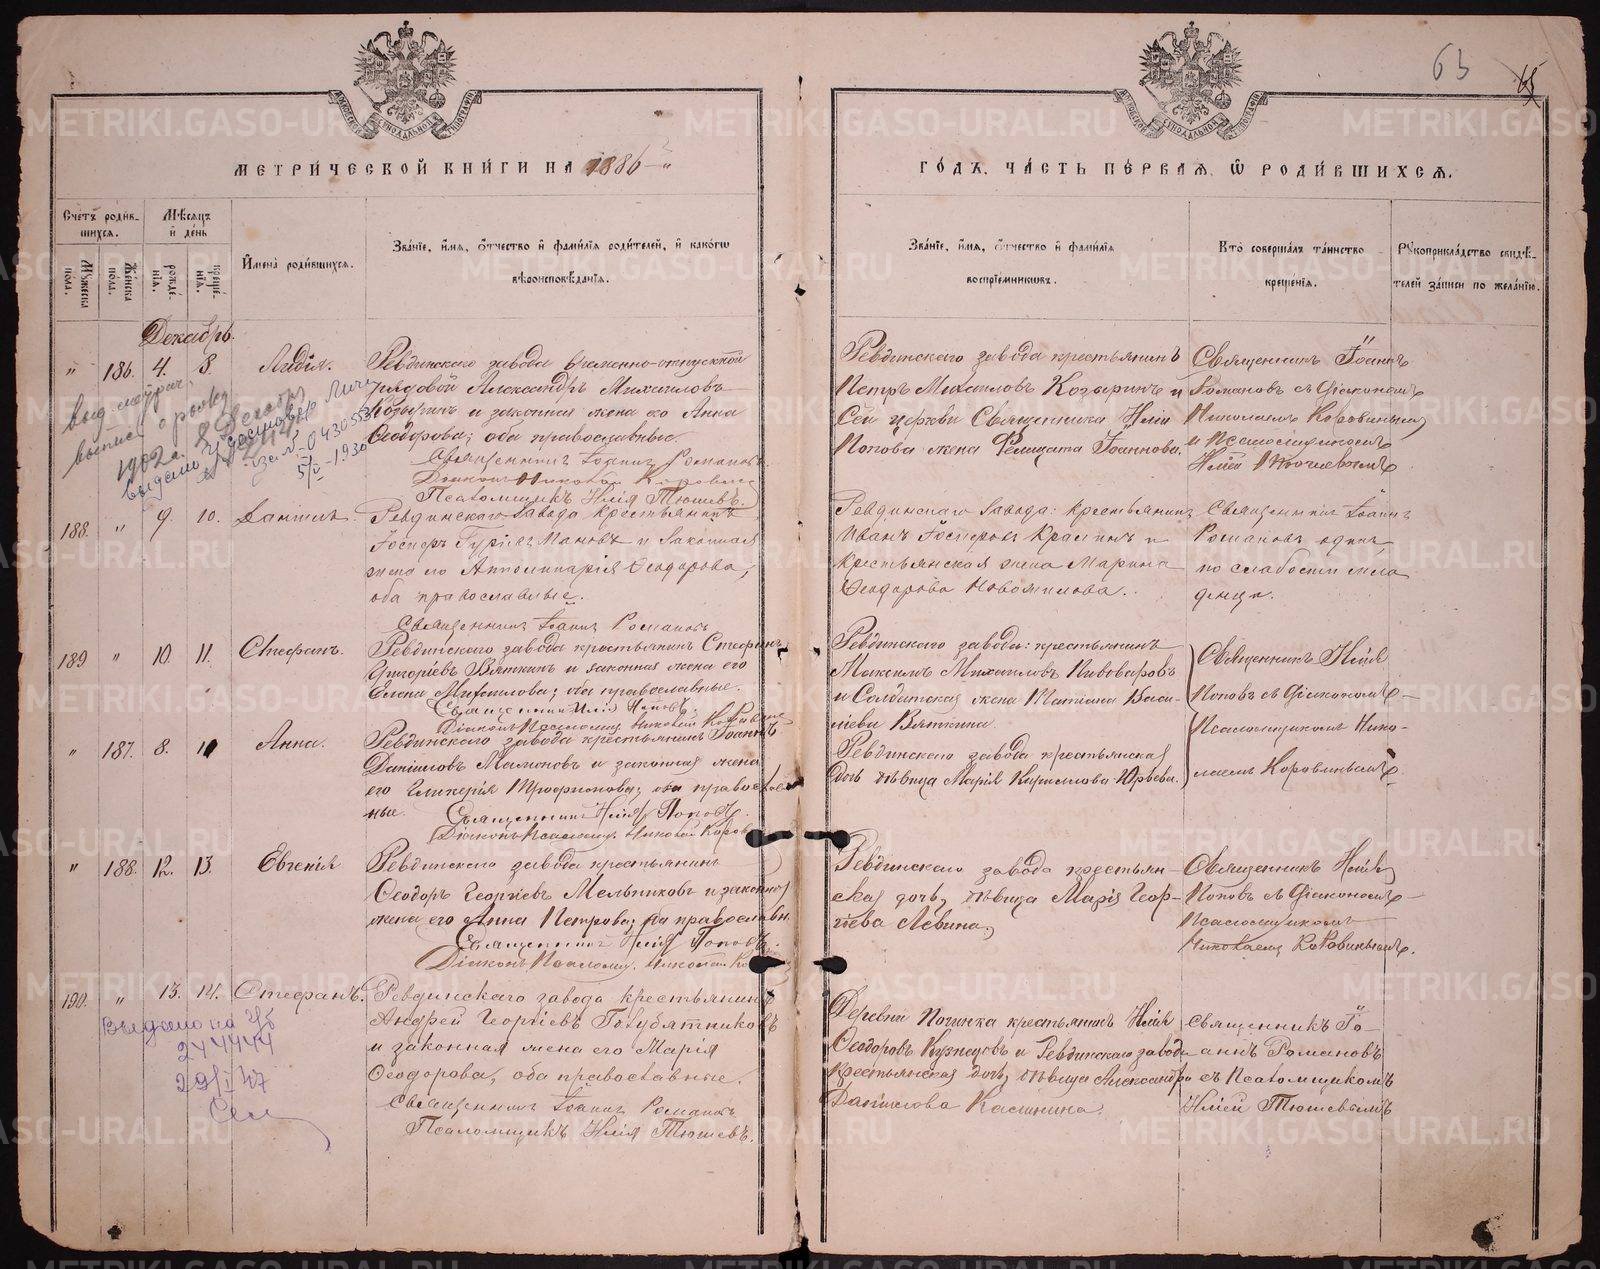 МОСКОВСКОЙ СУНОДАЛЬНОЙ ТИПОГРАФІИ
МОСКОВСКОЙ СУНОДАЛЬНОЙ ТИПОГРАФІИ
63
65
МЕТРИ́ЧЕСКОЙ КНИ́ГИ НА 1886
ГО́ДЪ, ЧА́СТЬ ПЕ́РВАѦ, Ѡ҆ РОДИ́ВШИХСѦ.
Сче́тъ роди́в-
шихсѧ.
Мꙋ́жеска по́ла.
Же́нска по́ла.
Мѣ́сѧцъ и҆ де́нь
рожде́-
нїѧ.
креще́-
нїѧ.
И҆мена̀ роди́вшихсѧ.
Зва́нїе, и҆́мѧ, ѻ҆́тчество и҆ фами́лїѧ роди́телей, и҆ како́гѡ
вѣроисповѣ́данїѧ.
Зва́нїе, и҆́мѧ, ѻ҆́тчество и҆ фами́лїѧ
воспрїе́мникѡвъ.
Кто̀ соверша́лъ та́инство
креще́нїѧ.
Рꙋкоприкла́дство свидѣ́-
телей за́писи по жела́нїю.
Декабрь.
" 186. 4. 8. Лидія.
Ревдинскаго завода временно-отпускной
рядовой Александръ Михаиловъ
Козыринъ и законная жена его Анна
Ѳеодорова; оба православные.
Священникъ Іоаннъ Романовъ
Діаконъ Николай Коровинъ
Псаломщикъ Илія Тюшевъ.
Ревдинскаго завода крестьянинъ
Петръ Михаиловъ Козыринъ и
Сей церкви Священника Иліи
Попова жена Фелицата Іоаннова.
Священникъ Іоаннъ
Романовъ съ Діакономъ
Николаемъ Коровинымъ
и Псаломщикомъ
Иліей Тюшевымъ
выписъ о рожд
1902 г.
043055
5/V-1930
188. " 9. 10. Даніилъ.
Ревдинскаго Завода крестьянинъ
и Законная
жена его Апполинарія Ѳеодорова,
оба православные.
Священникъ Іоаннъ Романовъ
Ревдинскаго Завода: крестьянинъ
Иванъ и
крестьянская жена Марина
Ѳеодорова
Священникъ Іоаннъ
Романовъ одинъ,
по слабости мла
денца.
189 " 10. 11. Стефанъ.
Ревдинскаго завода крестьянинъ Стефанъ
Григоріевъ Вяткинъ и законная жена его
Елена Михаилова; оба православные.
Священникъ Илія Поповъ.
Діаконъ Псаломщ. Николай Коровинъ
Ревдинскаго завода: крестьянинъ
Максимъ Михаиловъ Пивоваровъ
и Солдатская жена Татіана Васи-
ліева Вяткина.
Священникъ Илія
Поповъ съ діакономъ-
Псаломщикомъ Нико-
лаемъ Коровинымъ.
" 187. 8. 11 Анна.
Ревдинскаго завода крестьянинъ Іоаннъ
Даніиловъ Мамоновъ и законная жена
его Гликерія Трофимова; оба православ
ные. Священникъ Илія Поповъ.
Діаконъ Псаломщ. Николай Коров
Ревдинскаго завода крестьянская
дочь дѣвица Марія Кириллова Юрьева.
" 188. 12. 13. Евгенія
Ревдинскаго завода крестьянинъ
Ѳеодоръ Георгіевъ Мельниковъ и законная
жена его Анна Петрова; оба православн.
Священникъ Илія Поповъ.
Діаконъ Псаломщ. Николай Ко
Ревдинскаго завода крестьян-
ская дочь, дѣвица Марія Геор-
гіева Левина.
Священникъ Илія
Поповъ съ Діакономъ-
Псаломщикомъ
Николаемъ Коровинымъ.
190. " 13. 14. Стефанъ.
Ревдинскаго завода крестьянинъ
Андрей Георгіевъ Голубятниковъ
и законная жена его Марія
Ѳеодорова, оба православные.
Священникъ Іоаннъ Романовъ
Псаломщикъ Илія Тюшевъ.
Деревни Починка крестьянинъ Илія
Ѳеодоровъ Кузнецовъ и Ревдинскаго завода
крестьянская дочь, дѣвица Александра
Даніилова Калинина.
Священникъ Іо-
аннъ Романовъ
съ Псаломщикомъ
Иліей Тюшевымъ
Выдано на
244444
29/I 47
METRIKI.GASO-URAL.RU